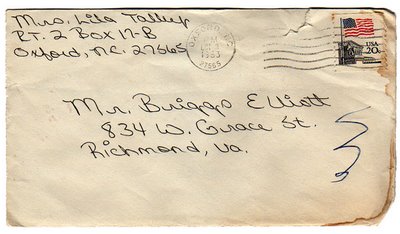 Mrs. Lila Talley
RT. 2 Box 17-B
Oxford, NC. 27565
OXFORD, NC
1983
27565
USA
20c
Mr. Briggs Elliott
834 W. Grace St.
Richmond, Va.